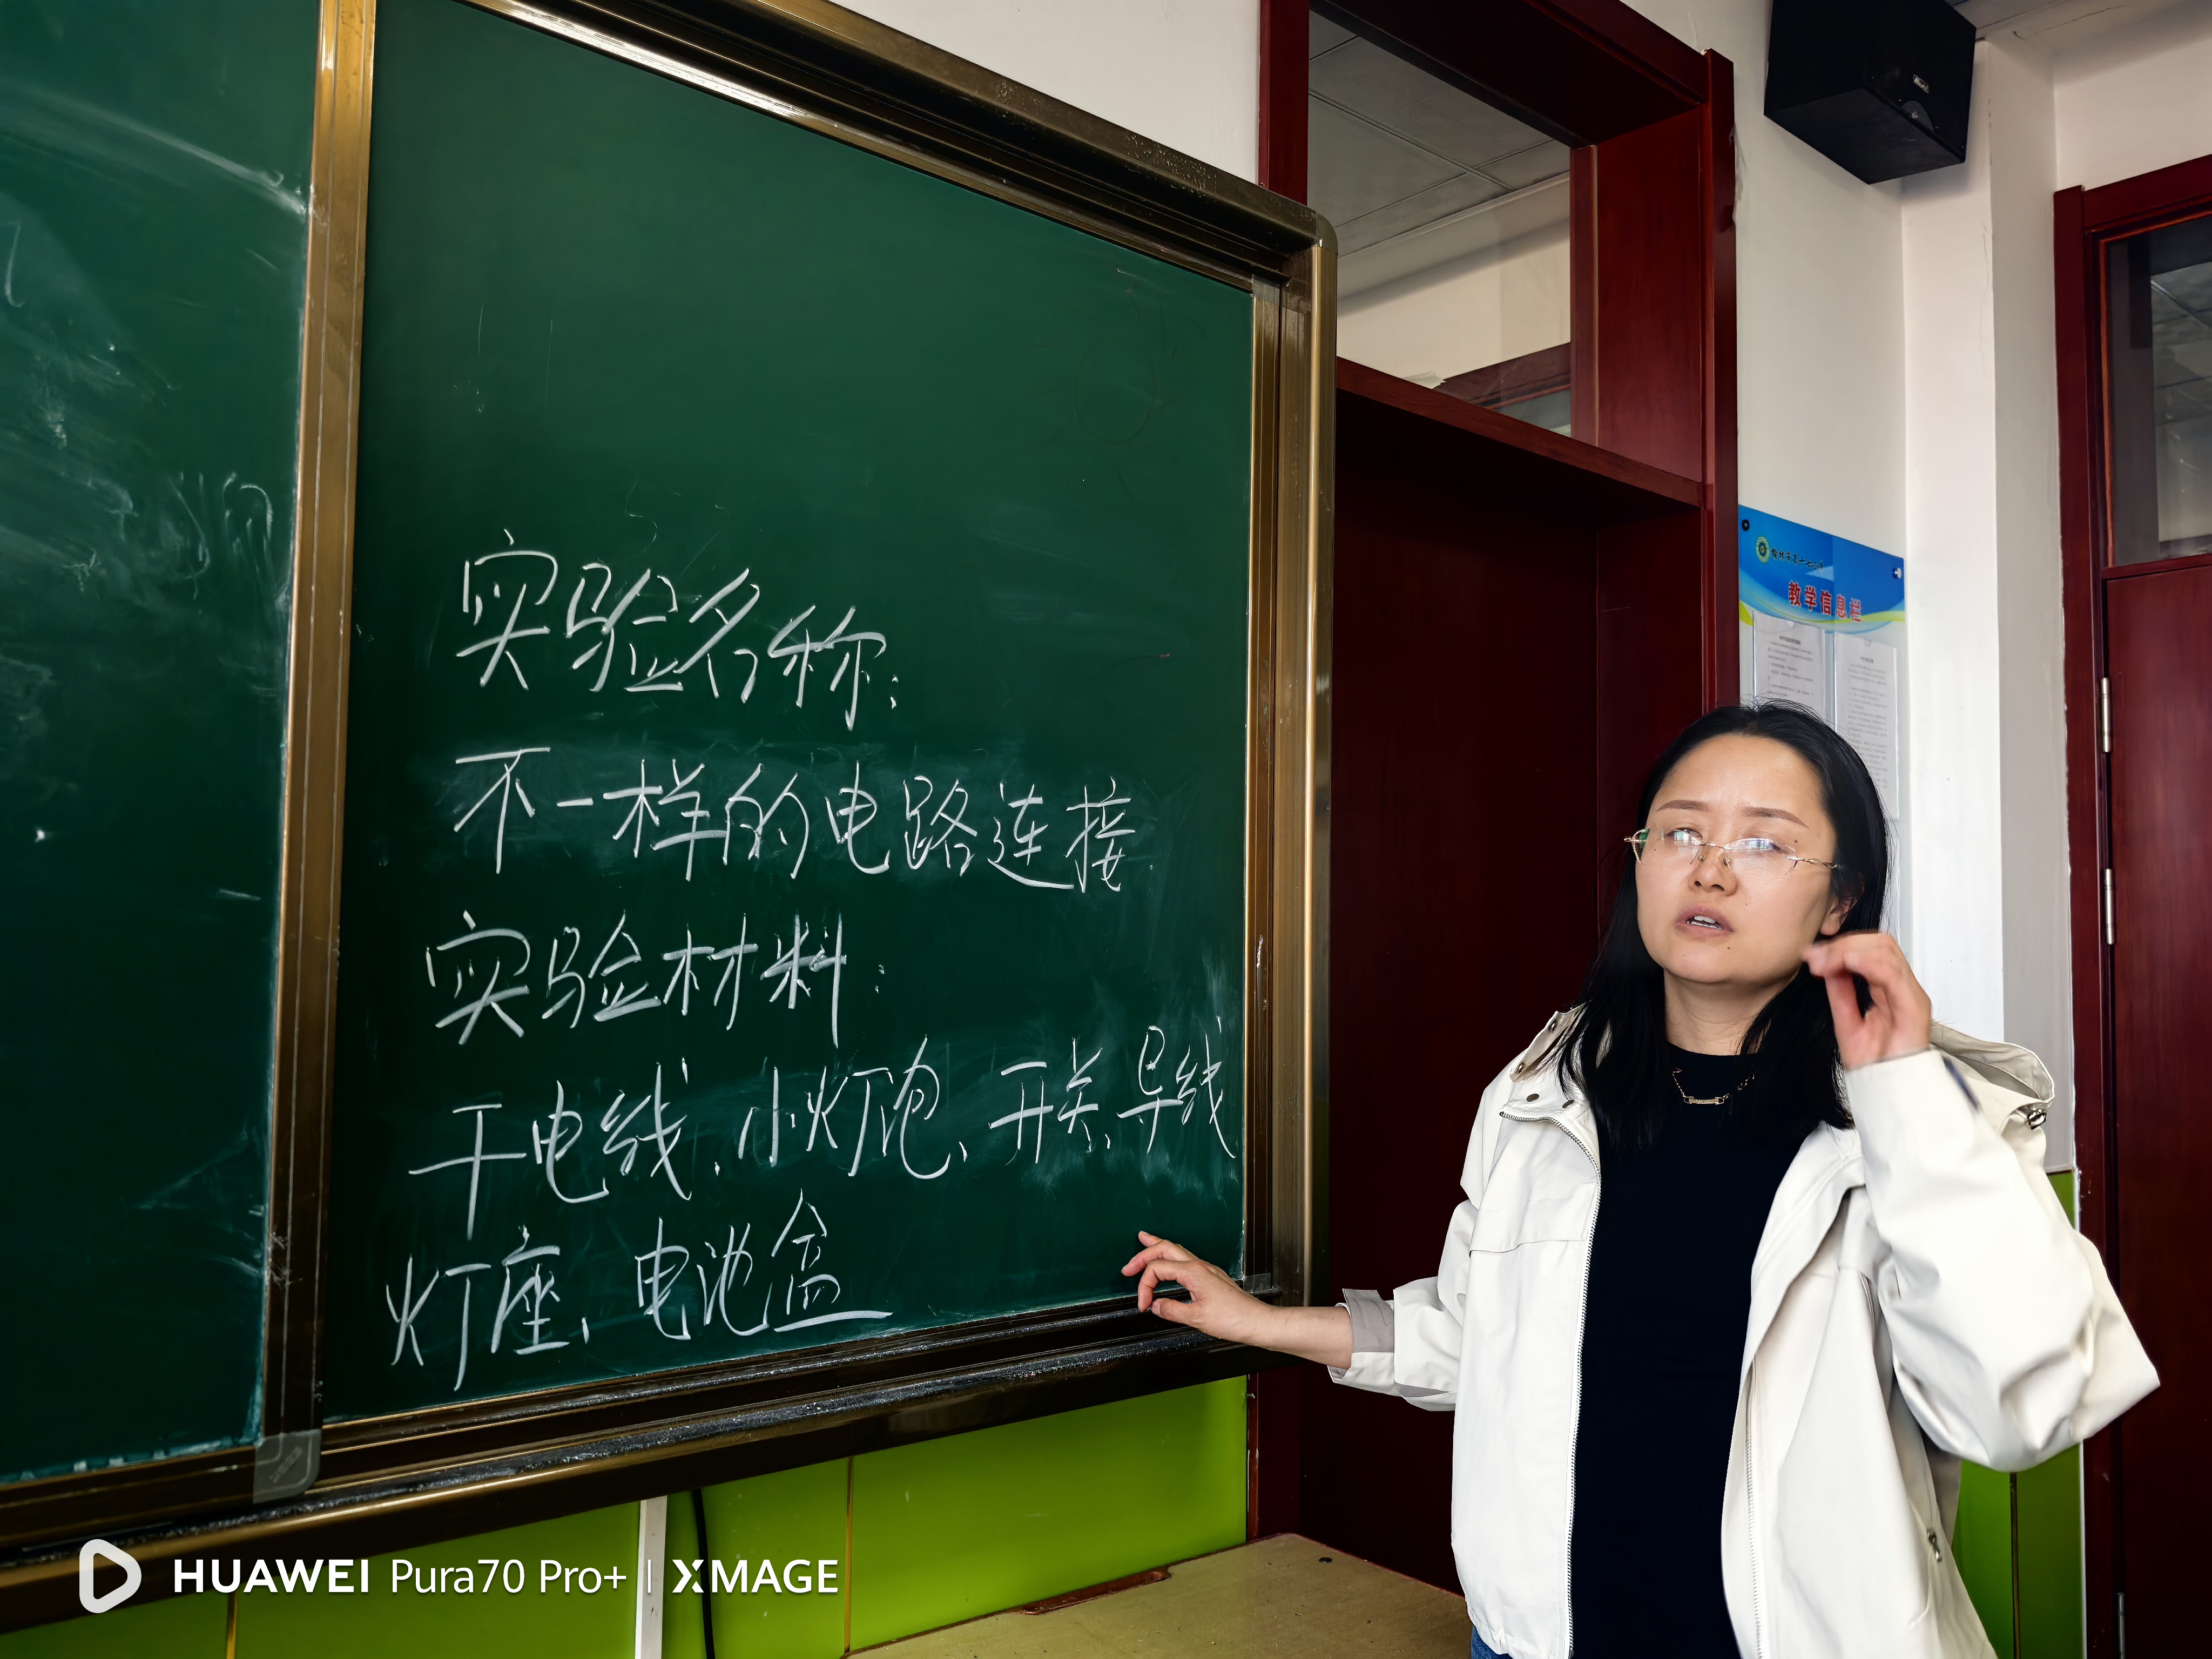 实验名称:
不一样的电路连接
实验材料:
干电线、小灯泡、开关、导线
灯座、电池盒
教学信息栏
HUAWEI Pura70 Pro+ | XMAGE